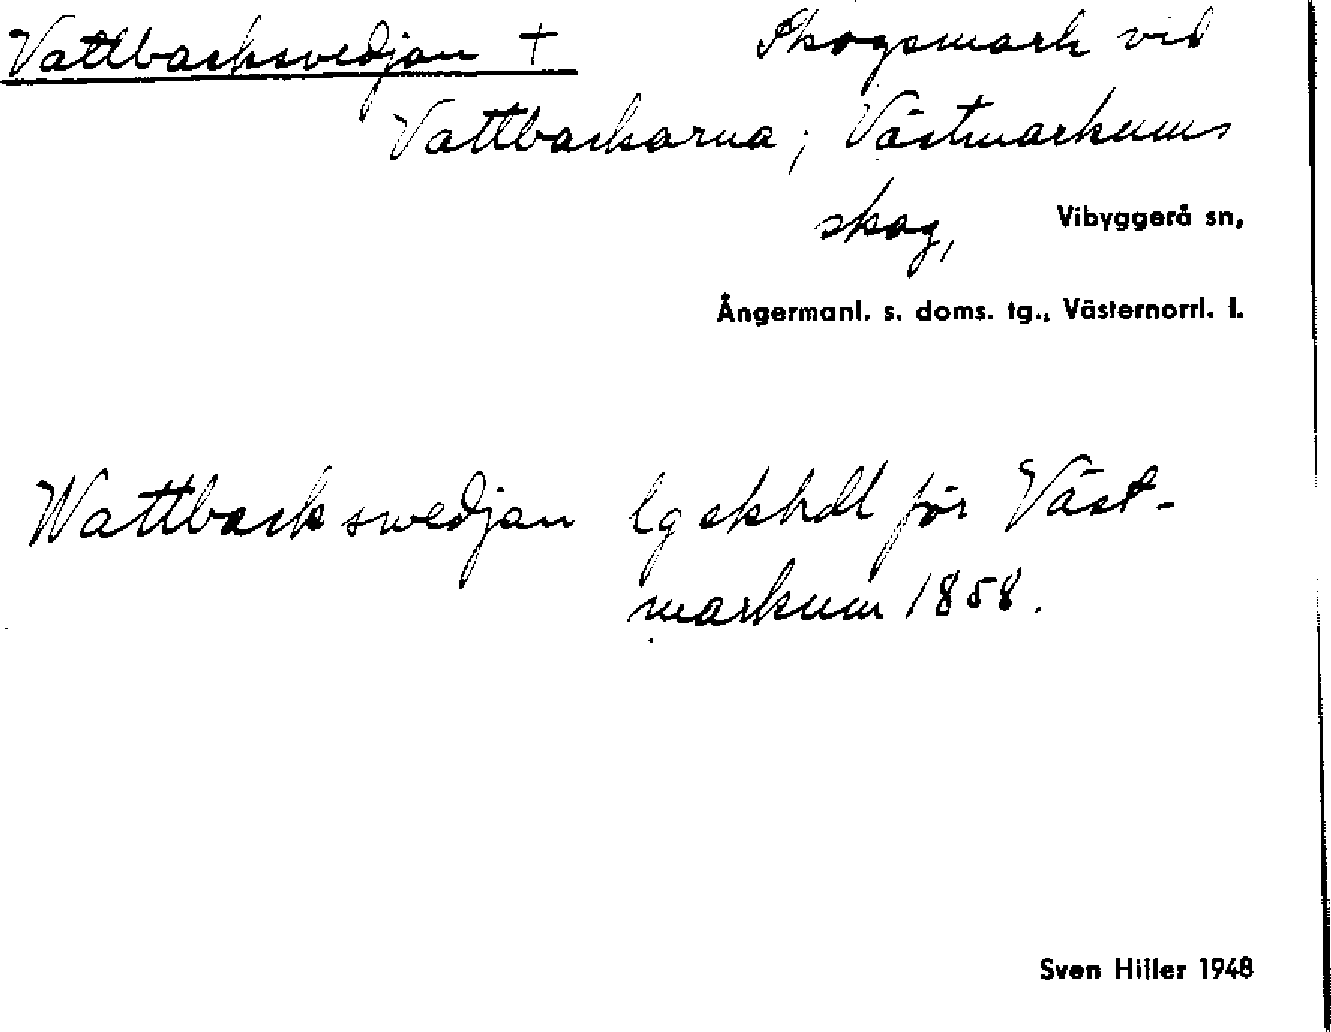 Vattbacksvedjan † Skogsmark vid
Vattbackarna; Västmarkums
skog, Vibyggerå sn,
Ångermanl. s. doms. tg., Västernorrl. l.
Wattbackswedjan lg skhdl för Väst-
markum 1858.
Sven Hiller 1948